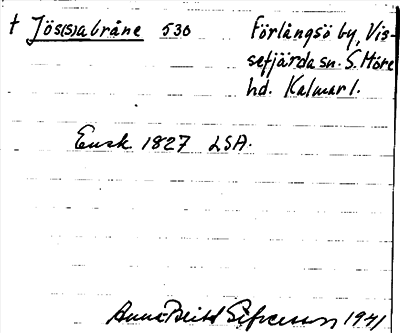 † Jös(s)abråne 530 Förlångsö by, Vis-
sefjärda sn. S. Möre
hd. Kalmar l.
Ensk 1827 LSA.
Anna-Britt 1941